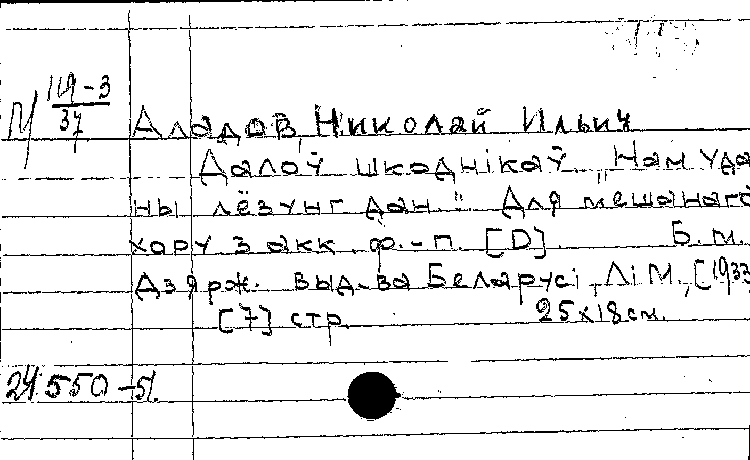 М 119-3/37
Аладов, Николай Ильич
Далоў шкоднікаў „Нам уда
ны лёзунг дан". Для мешанаго
хору з акк. ф.-п. [D] Б.м.
Дзярж. выд-ва Беларусі, ЛіМ, [1933
[7] стр. 25х18см.
24.550-51.